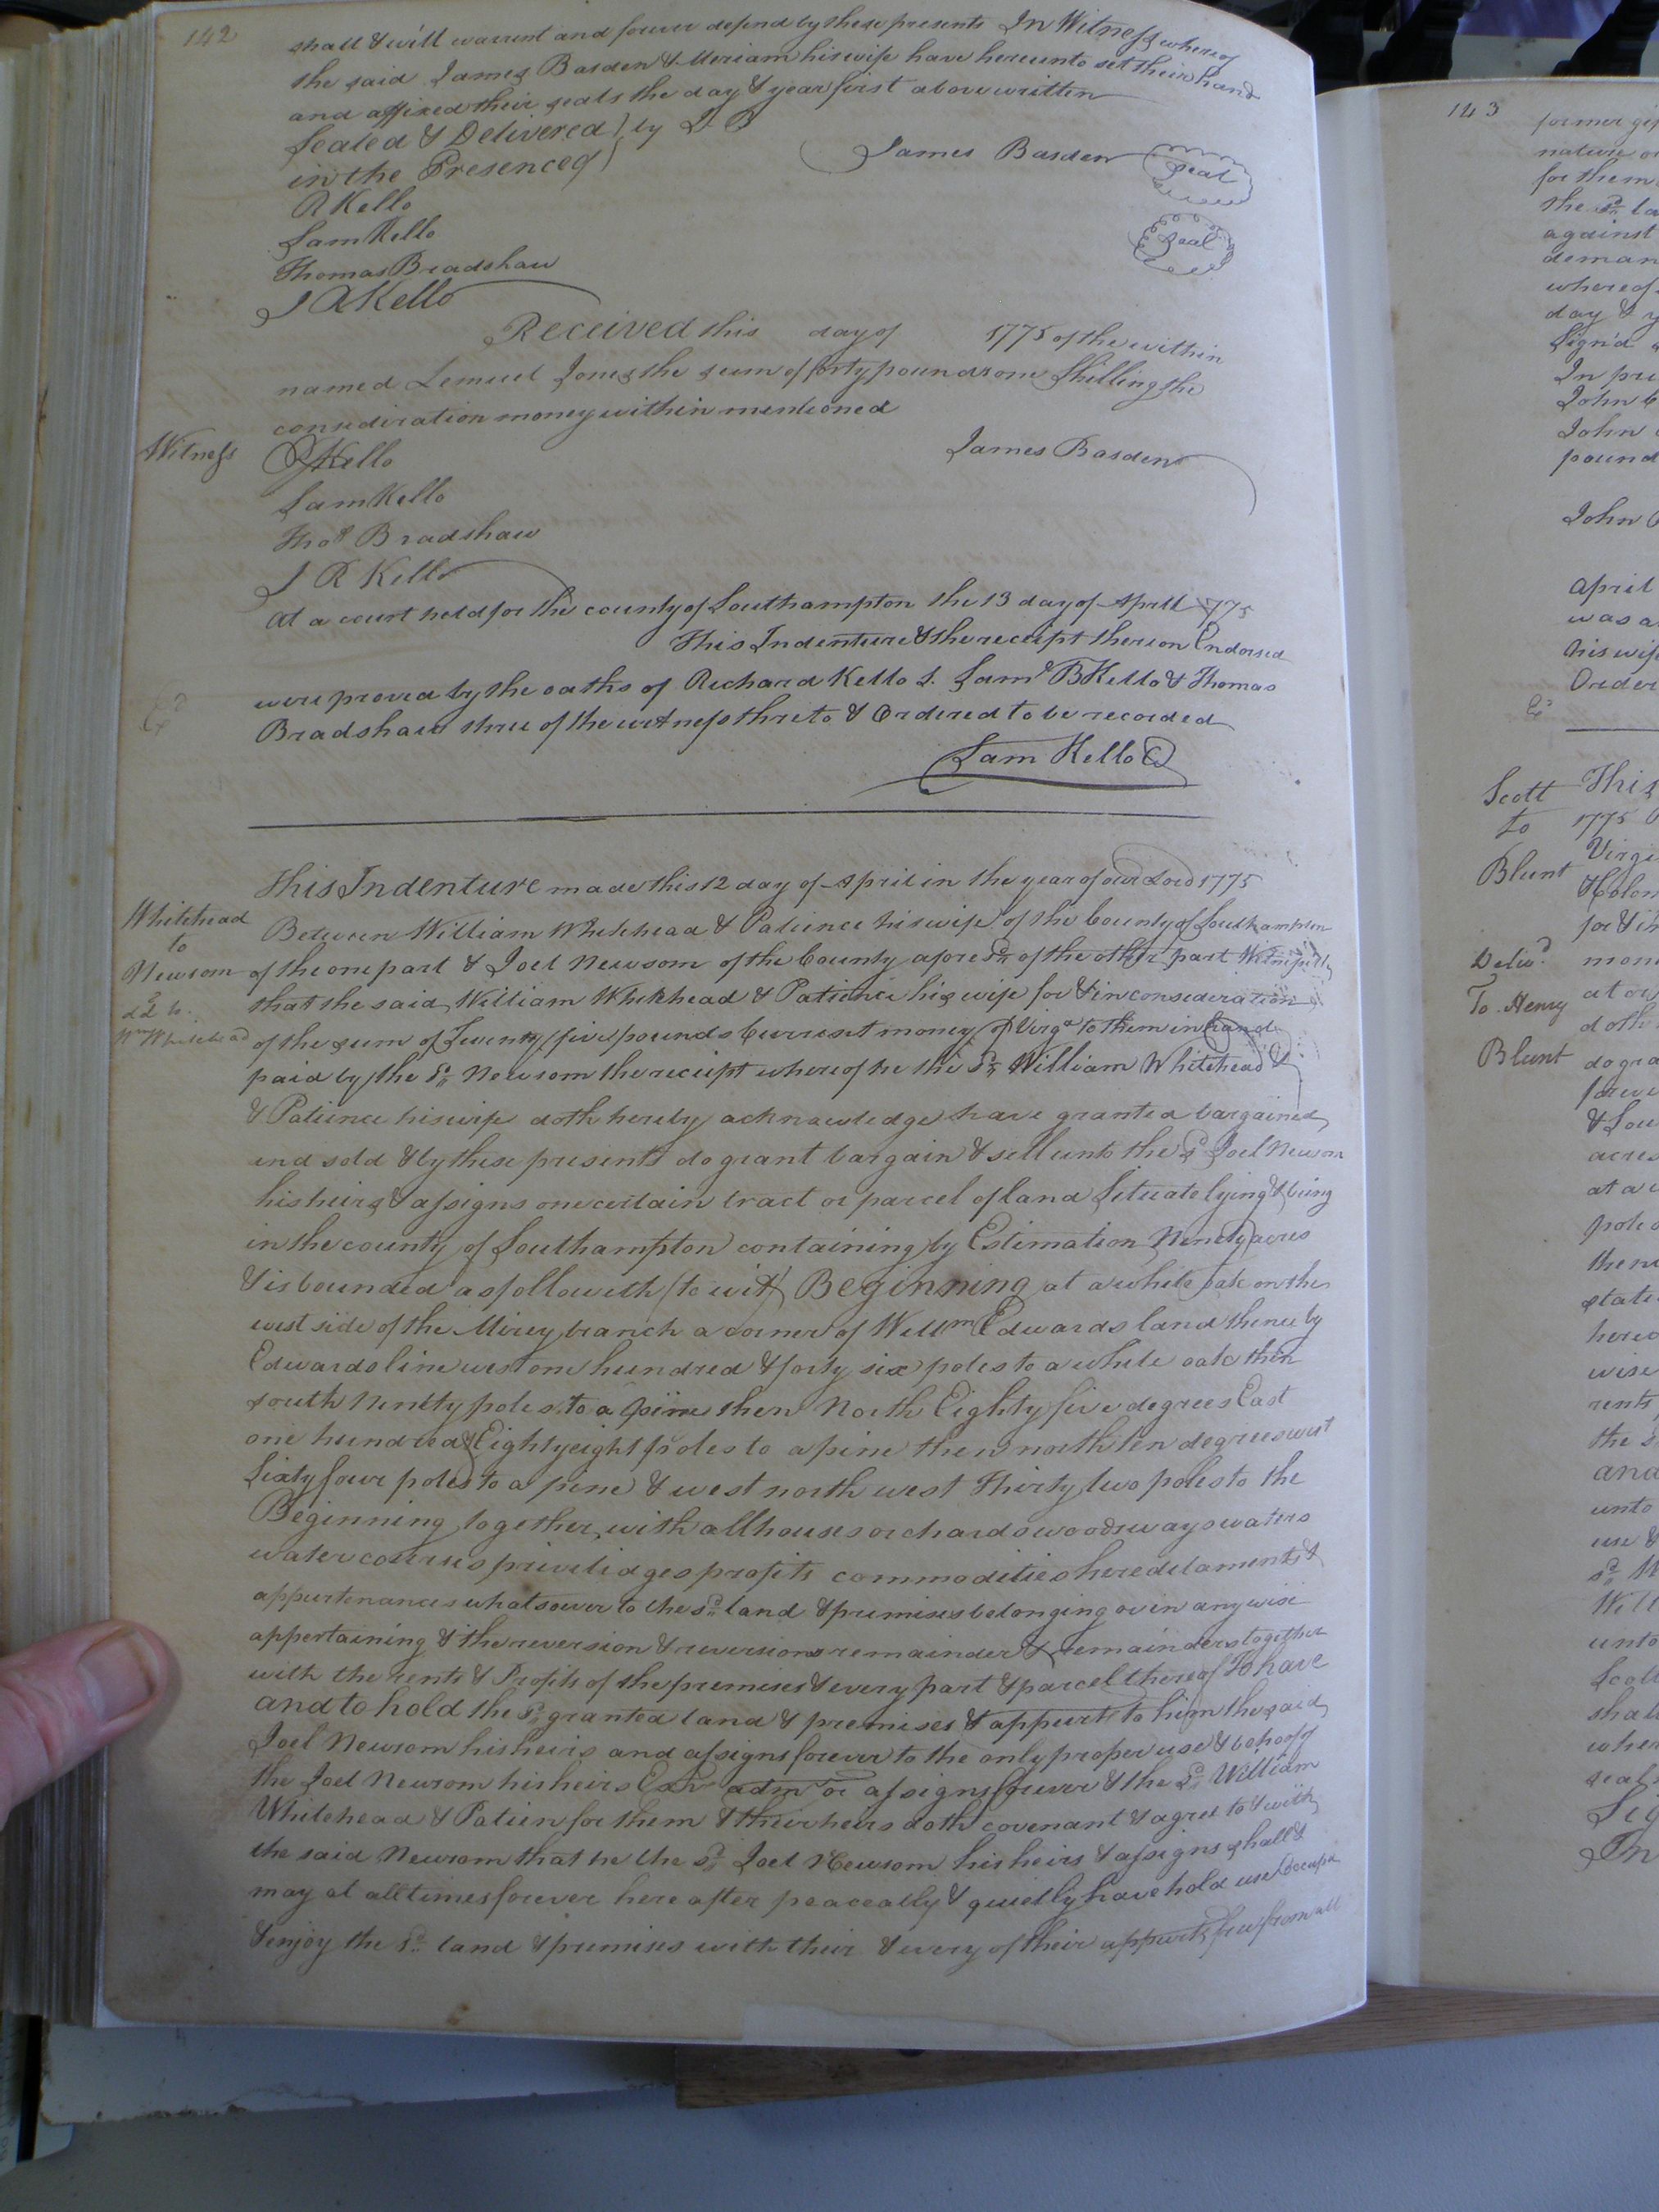 142
shall & will warrent and forever defend by these presents In Witness whereof
the said James Basden & Meriam his wife have hereunto set their hand
and affixed their seals the day & year first above written
Sealed & Delivered } by J. B
in the Presence of }
James Basden Seal
R Kello
Seal
Sam Kello
Thomas Bradshaw
J R Kello
Received this day of 1775 of the within
named Lemuel Jones the sum of forty pounds one Shilling the
consideration money within mentioned
Witness
R Kello
James Basden
Sam Kello
Thos Bradshaw
J R Kello
At a court held for the county of Southampton the 13 day of April 1775
This Indenture & the receipt thereon Endorsed
were proved by the oaths of Richard Kello J. Saml B Kello & Thomas
Bradshaw three of the witness threto & Ordered to be recorded
Sam Kello
Whitehead
to
Newsom
Wm Whitehead
This Indenture made this 12 day of April in the year of our Lord 1775
Between William Whitehead & Patience his wife of the County of Southampton
of the one part & Joel Newsom of the County afores.d of the other part Witnesseth
that the said William Whitehead & Patience his wife for & in consideration
of the sum of Twenty five pounds Current money of Virga to them in hand
paid by the Sd Newsom the receipt whereof he the Sd William Whitehead &
& Patience his wife doth hereby acknowledge have granted bargained
and sold & by these presents do grant bargain & sell unto the Sd Joel Newsom
his heirs & assigns one certain tract or parcel of land Situate lying & being
in the county of Southampton containing by Estimation Ninety acres
& is bounded as followeth (to wit) Beginning at a white oak on the
west side of the Mirey branch a corner of Willm Edwards land thence by
Edwards line west one hundred & forty six poles to a white oak then
south Ninety poles to a pine then North Eighty five degrees East
one hundred & Eighty eight poles to a pine then north ten degrees west
Sixty four poles to a pine & west north west Thirty two poles to the
Beginning together with all houses orchards woods ways waters
water courses priviliages profits commodities heredetaments &
appurtenances whatsoever to the Sd land & premises belonging or in any wise
appertaining & the reversion & reversions remainder & remainders together
with the rents & Profits of the premises & every part & parcel thereof To have
and to hold the Sd granted land & premises & appurts to him the said
Joel Newsom his heirs and assigns forever to the only proper use & behoof of
the Joel Newsom his heirs Exr admr or assigns forever & the Sd William
Whitehead & Patien for them & their heirs doth covenant & agree to & with
the said Newsom that he the Sd Joel Newsom his heirs & assigns shall &
may at all times forever here after peaceally & quietly have hold use occupy
& enjoy the Sd land & premises with their & every of their appurts free from all
143
nature
for them
the Sd
against
whereof
day &
Sign'd
John
John
pound
John
April
was a
his wife
Order
Scott
to
Blunt
This
1775
for & in
Delivd
To Henry
Blunt
at or
doth
acres
at a
wise
rents
the S
and
unto
use &
Will
unto
Scott
In